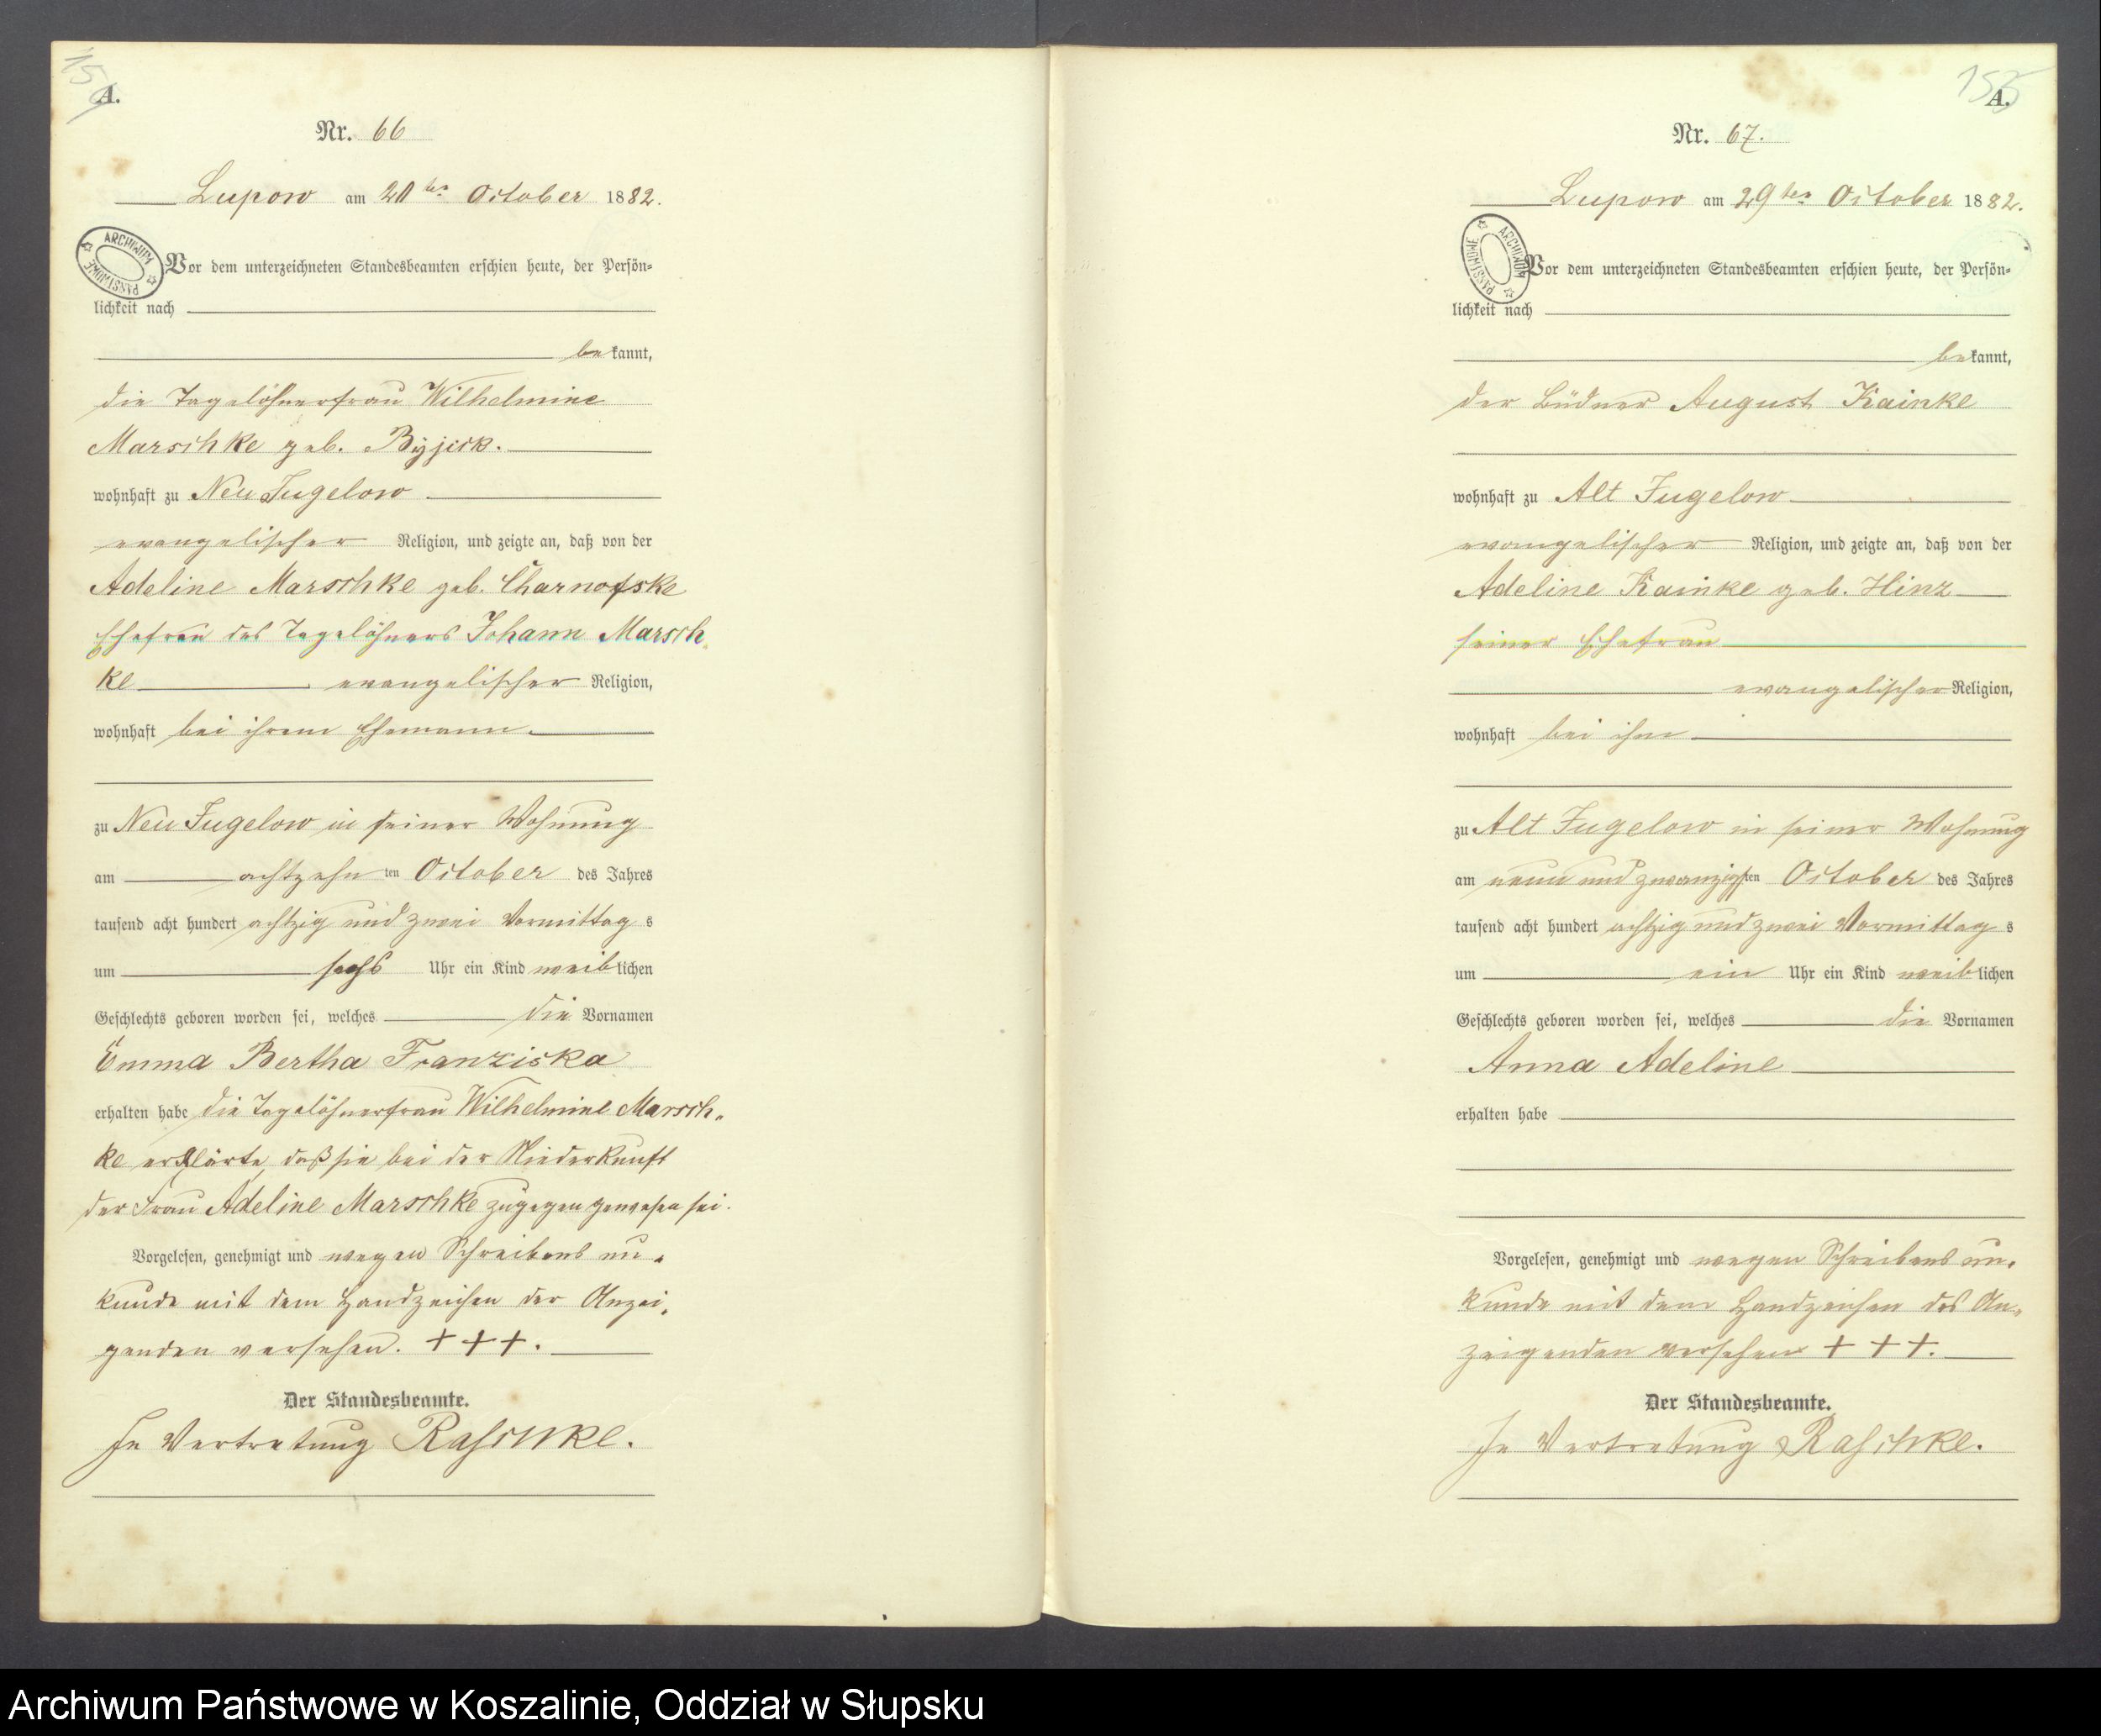 154
A.
Nr. 66
Lupow am 20ten October 1882.
ARCHIWUM PAŃSTWOWE
Vor dem unterzeichneten Standesbeamten erschien heute, der Persön-
lichkeit nach
bekannt,
die Tagelöhnerfrau Wilhelmine
Marschke geb.
wohnhaft zu Neu Jugelow
evangelischer Religion, und zeigte an, daß von der
Adeline Marschke geb. Charnofske
Ehefrau des Tagelöhners Johann Marsch-
ke evangelischer Religion,
wohnhaft bei ihrem Ehemann
zu Neu Jugelow in seiner Wohnung
am achtzehnten October des Jahres
tausend acht hundert achtzig und zwei Vormittags
um sechs Uhr ein Kind weiblichen
Geschlechts geboren worden sei, welches die Vornamen
Emma Bertha Franziska
erhalten habe die Tagelöhnerfrau Wilhelmine Marsch-
ke erklärte, daß sie bei der Niederkunft
der Frau Adeline Marschke zugegen gewesen sei.
Vorgelesen, genehmigt und wegen Schreibens un-
kunde mit dem Handzeichen der Anzei-
genden versehen. +++.
Der Standesbeamte.
In Vertretung Raschke.
155
A.
Nr. 67.
Lupow am 29ten October 1882.
ARCHIWUM PAŃSTWOWE
Vor dem unterzeichneten Standesbeamten erschien heute, der Persön-
lichkeit nach
bekannt,
der Büdner August Kainke
wohnhaft zu Alt Jugelow
evangelischer Religion, und zeigte an, daß von der
Adeline Kainke geb. Hinz
seiner Ehefrau
evangelischer Religion,
wohnhaft bei ihm
zu Alt Jugelow in seiner Wohnung
am neun und zwanzigsten October des Jahres
tausend acht hundert achtzig und zwei Vormittags
um ein Uhr ein Kind weiblichen
Geschlechts geboren worden sei, welches die Vornamen
Anna Adeline
erhalten habe
Vorgelesen, genehmigt und wegen Schreibens un-
kunde mit dem Handzeichen des An-
zeigenden versehen +++.
Der Standesbeamte.
In Vertretung Raschke.
Archiwum Państwowe w Koszalinie, Oddział w Słupsku